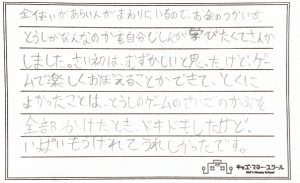 金使いがあらい人がまわりにいるので、お金のつかい方、
とうしがなんなのかを自分じしんが学びたくてさんか
しました。さい初は、むずかしいと思ったけど、ゲー
ムで楽しくおぼえることができて、とくに
よかったことは、とうしのゲームのさいごのかぶを
全部かけたとき、ドキドキしたけど、
いっぱいもうけれてうれしかったです。
キッズ・マネー・スクール
Kid's Money School